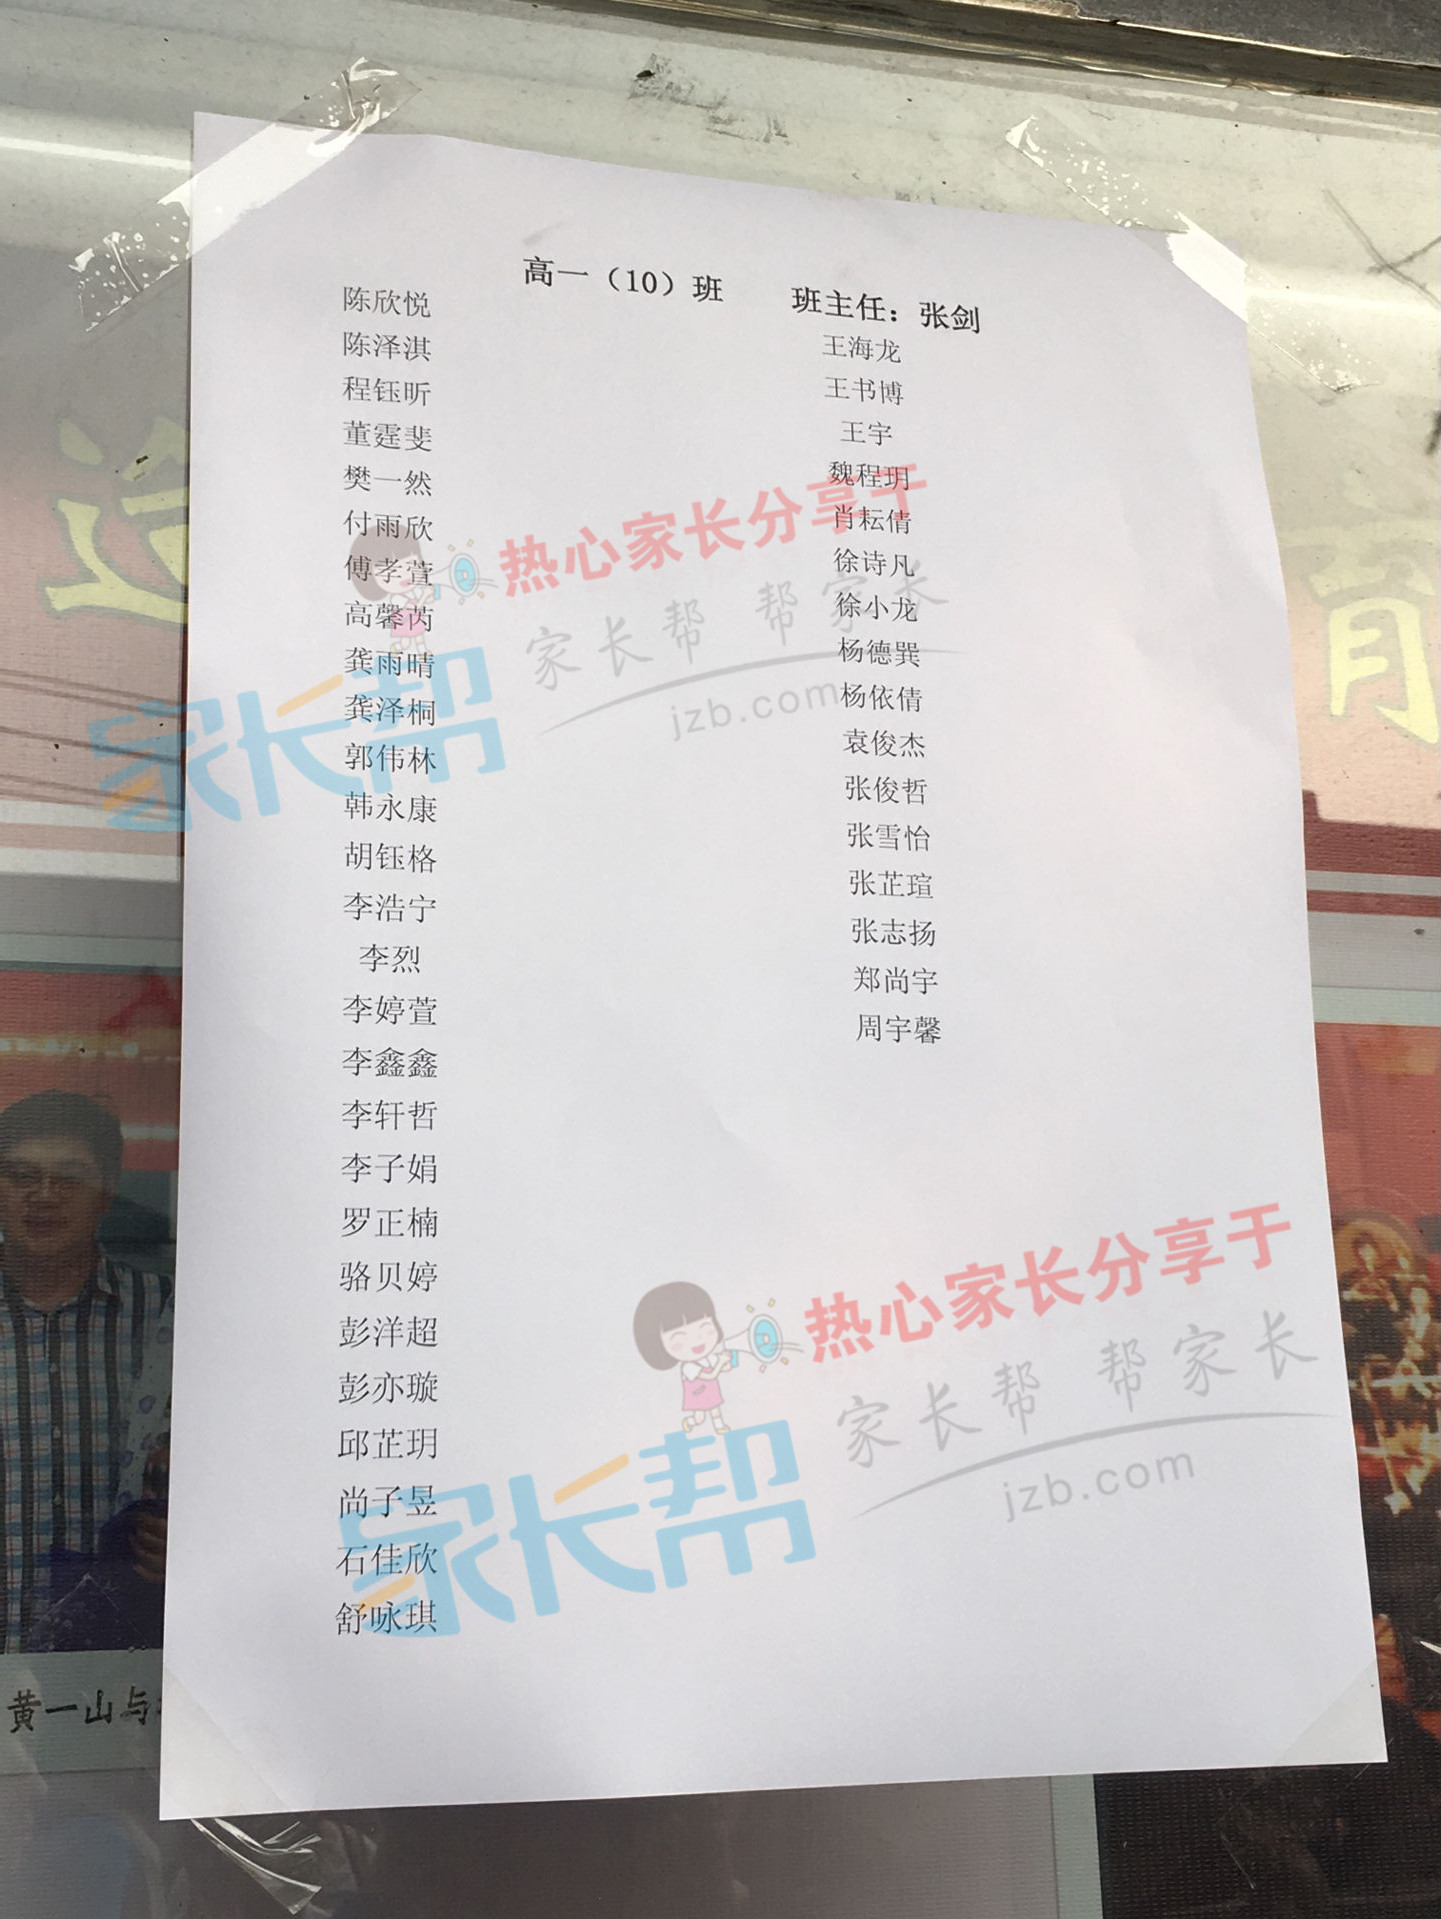 高一（10）班 班主任：张剑
陈欣悦
陈泽淇
程钰昕
董霆斐
樊一然
付雨欣
傅孝萱
高馨芮
龚雨晴
龚泽桐
郭伟林
韩永康
胡钰格
李浩宁
李烈
李婷萱
李鑫鑫
李轩哲
李子娟
罗正楠
骆贝婷
彭洋超
彭亦璇
邱芷玥
尚子昱
石佳欣
舒咏琪
王海龙
王书博
王宇
魏程玥
肖耘倩
徐诗凡
徐小龙
杨德巽
杨依倩
袁俊杰
张俊哲
张雪怡
张芷瑄
张志扬
郑尚宇
周宇馨
热心家长分享于
家长帮 帮家长
家长帮
jzb.com
热心家长分享于
家长帮 帮家长
家长帮
jzb.com
黄一山与